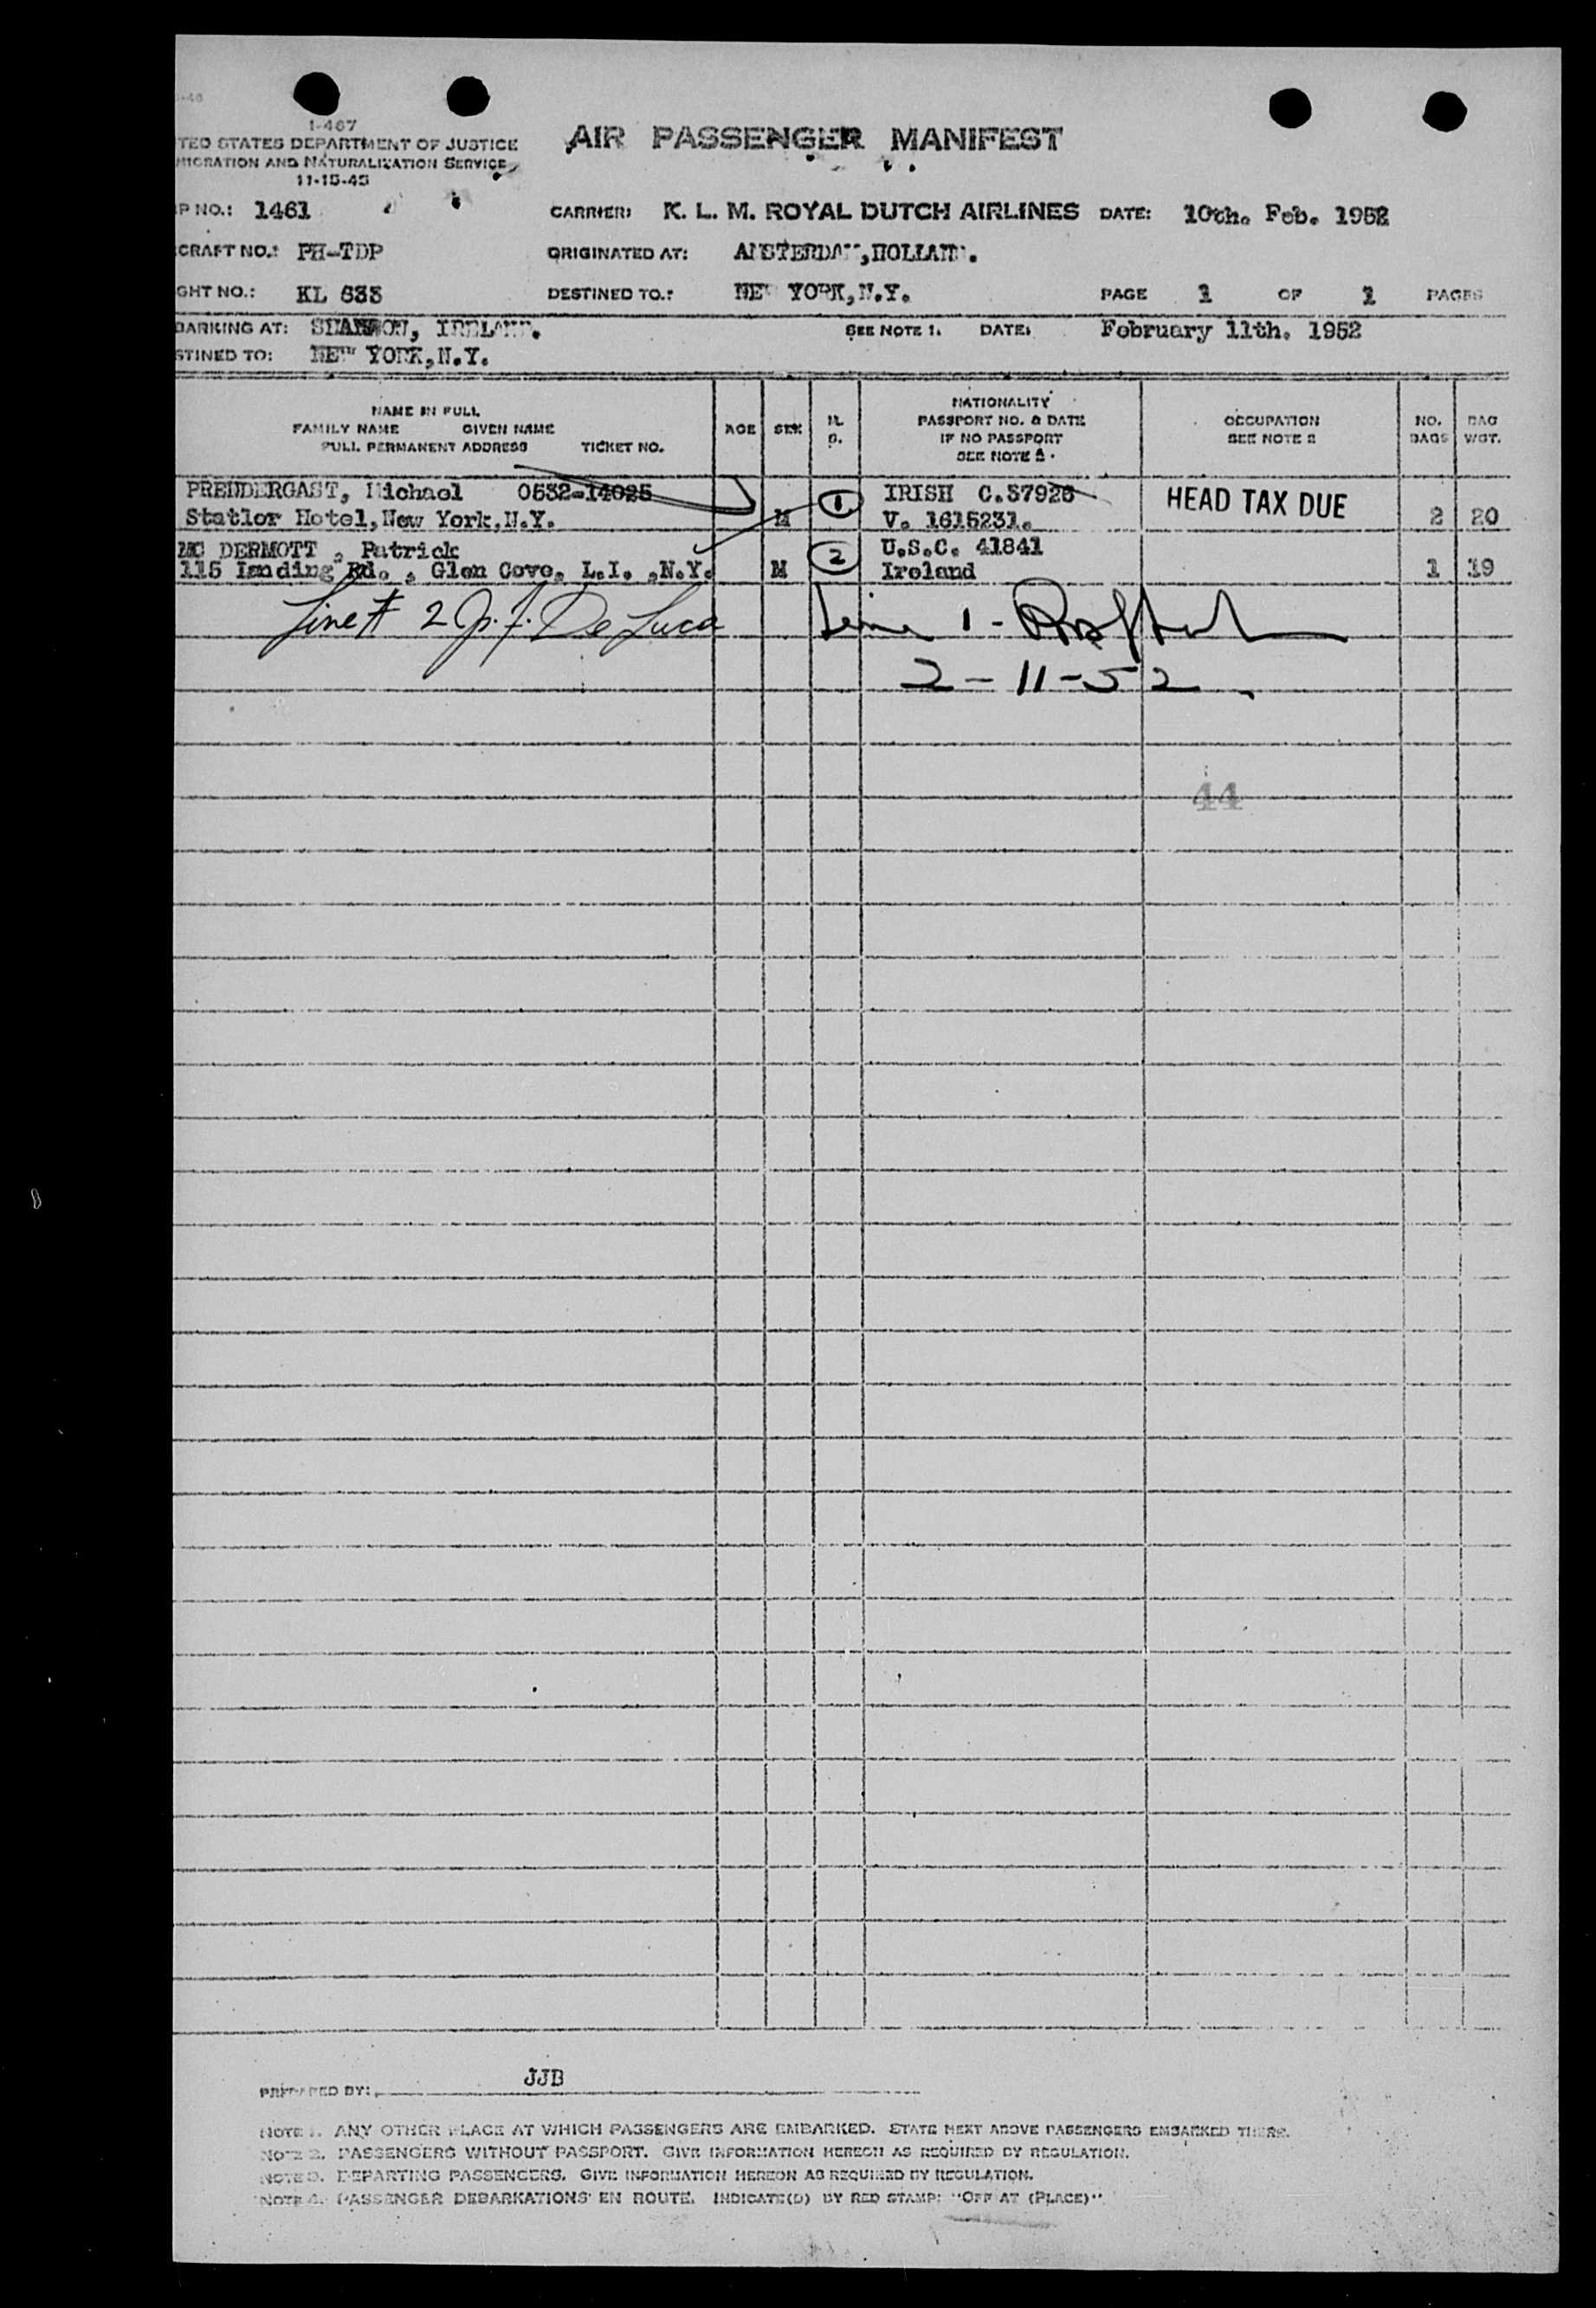 1-467
TED STATES DEPARTMENT OF JUSTICE
MIGRATION AND NATURALIZATION SERVICE
11-15-45
AIR PASSENGER MANIFEST
P NO.: 1461 CARRIER: K. L. M. ROYAL DUTCH AIRLINES DATE: 10th. Feb. 1952
CRAFT NO.: PH-TDP ORIGINATED AT: AMSTERDAM,HOLLAND.
GHT NO.: KL 633 DESTINED TO.: NEW YORK,N.Y. PAGE 1 OF 1 PAGES
BARKING AT: SHANNON, IRELAND. SEE NOTE 1. DATE: February 11th. 1952
STINED TO: NEW YORK,N.Y.
NAME IN FULL
FAMILY NAME GIVEN NAME
FULL PERMANENT ADDRESS TICKET NO.
AGE SEX
NATIONALITY
PASSPORT NO. & DATE
IF NO PASSPORT
SEE NOTE 2
OCCUPATION
SEE NOTE 2
NO.
BAGS
BAG
WGT.
PRENDERGAST, Michael 0532-14025 1 IRISH C.37926 HEAD TAX DUE
Statler Hotel,New York,N.Y. M V. 1615231. 2 20
MC DERMOTT , Patrick 2 U.S.C. 41841
115 Landing Rd. , Glen Cove, L.I. ,N.Y. M Ireland 1 19
Line # 2 J. F. De Luca Line 1 -
2-11-52
44
PREPARED BY: JJB
NOTE 1. ANY OTHER PLACE AT WHICH PASSENGERS ARE EMBARKED. STATE NEXT ABOVE PASSENGERS EMBARKED THERE.
NOTE 2. PASSENGERS WITHOUT PASSPORT. GIVE INFORMATION HEREON AS REQUIRED BY REGULATION.
NOTE 3. DEPARTING PASSENGERS. GIVE INFORMATION HEREON AS REQUIRED BY REGULATION.
NOTE 4. PASSENGER DEBARKATIONS EN ROUTE. INDICATE(D) BY RED STAMP: "OFF AT (PLACE)".